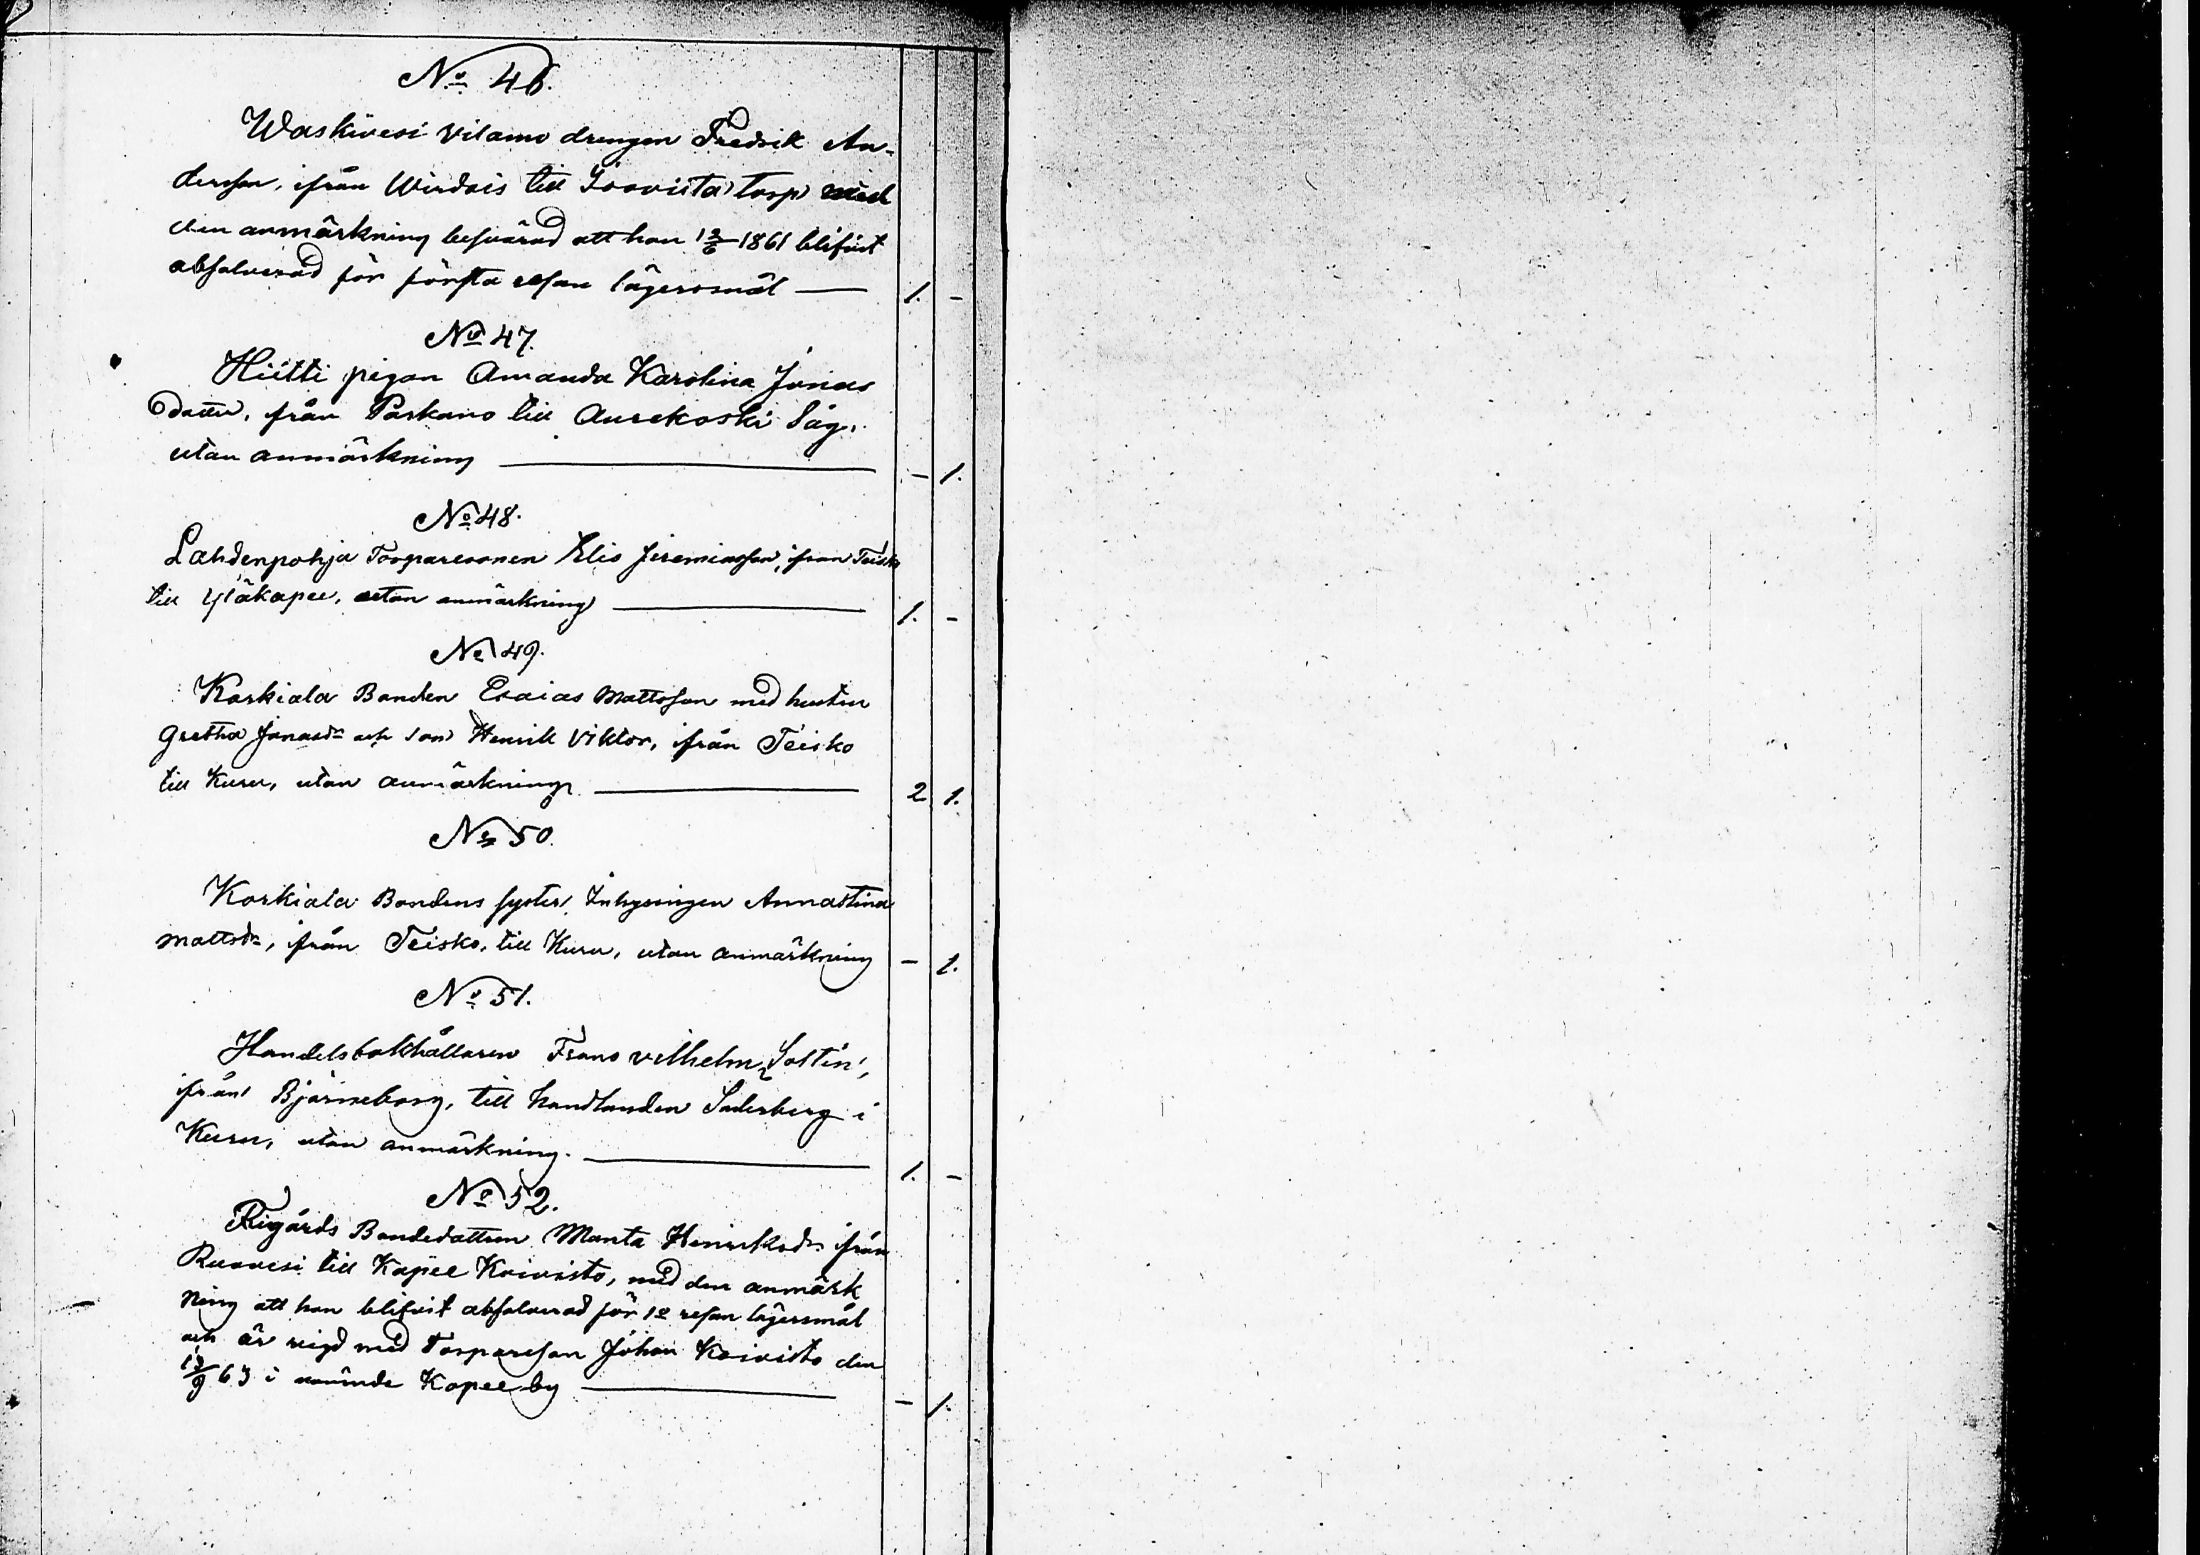 No 46.
Waskivesi Vilamo drengen Fredrik An-
dersson, ifrån Wirdois till Isoviita torp med
den anmärkning besvärad att han 12/6 1861 blifvit
absolverad för första resan lägersmål — 1. -
No 47.
Hiitti pigan Amanda Karolina Jonas
dotter, från Parkano till Aurekoski Såg,
utan anmärkning — - 1.
No 48.
Lahdenpohja Torparesonen Elis Jeremiasson, ifrån Teisko
till Yläkapee, utan anmärkning — 1. -
No 49.
Korkiala Bonden Esaias Mattsson med hustru
Gretha Jonasdr och son Henrik Viktor, ifrån Teisko
till Kuru, utan anmärkning — 2 1.
No 50.
Korkiala Bondens syster Inhysingen Annastina
Mattsdr, ifrån Teisko, till Kuru, utan anmärkning - 1.
No 51.
Handelsbokhållaren Frans Vilhelm
ifrån Björneborg, till handlanden Söderberg i
Kuru, utan anmärkning. — 1. -
No 52.
Bondedottren Manta Henriksdr ifrån
Ruovesi till Kapee Koivisto, med den anmärk
ning att hon blifvit absolverad för 1a resan lägersmål
och är vigd med Torparesson Johan Koivisto den
63 i Kapee by — - 1.